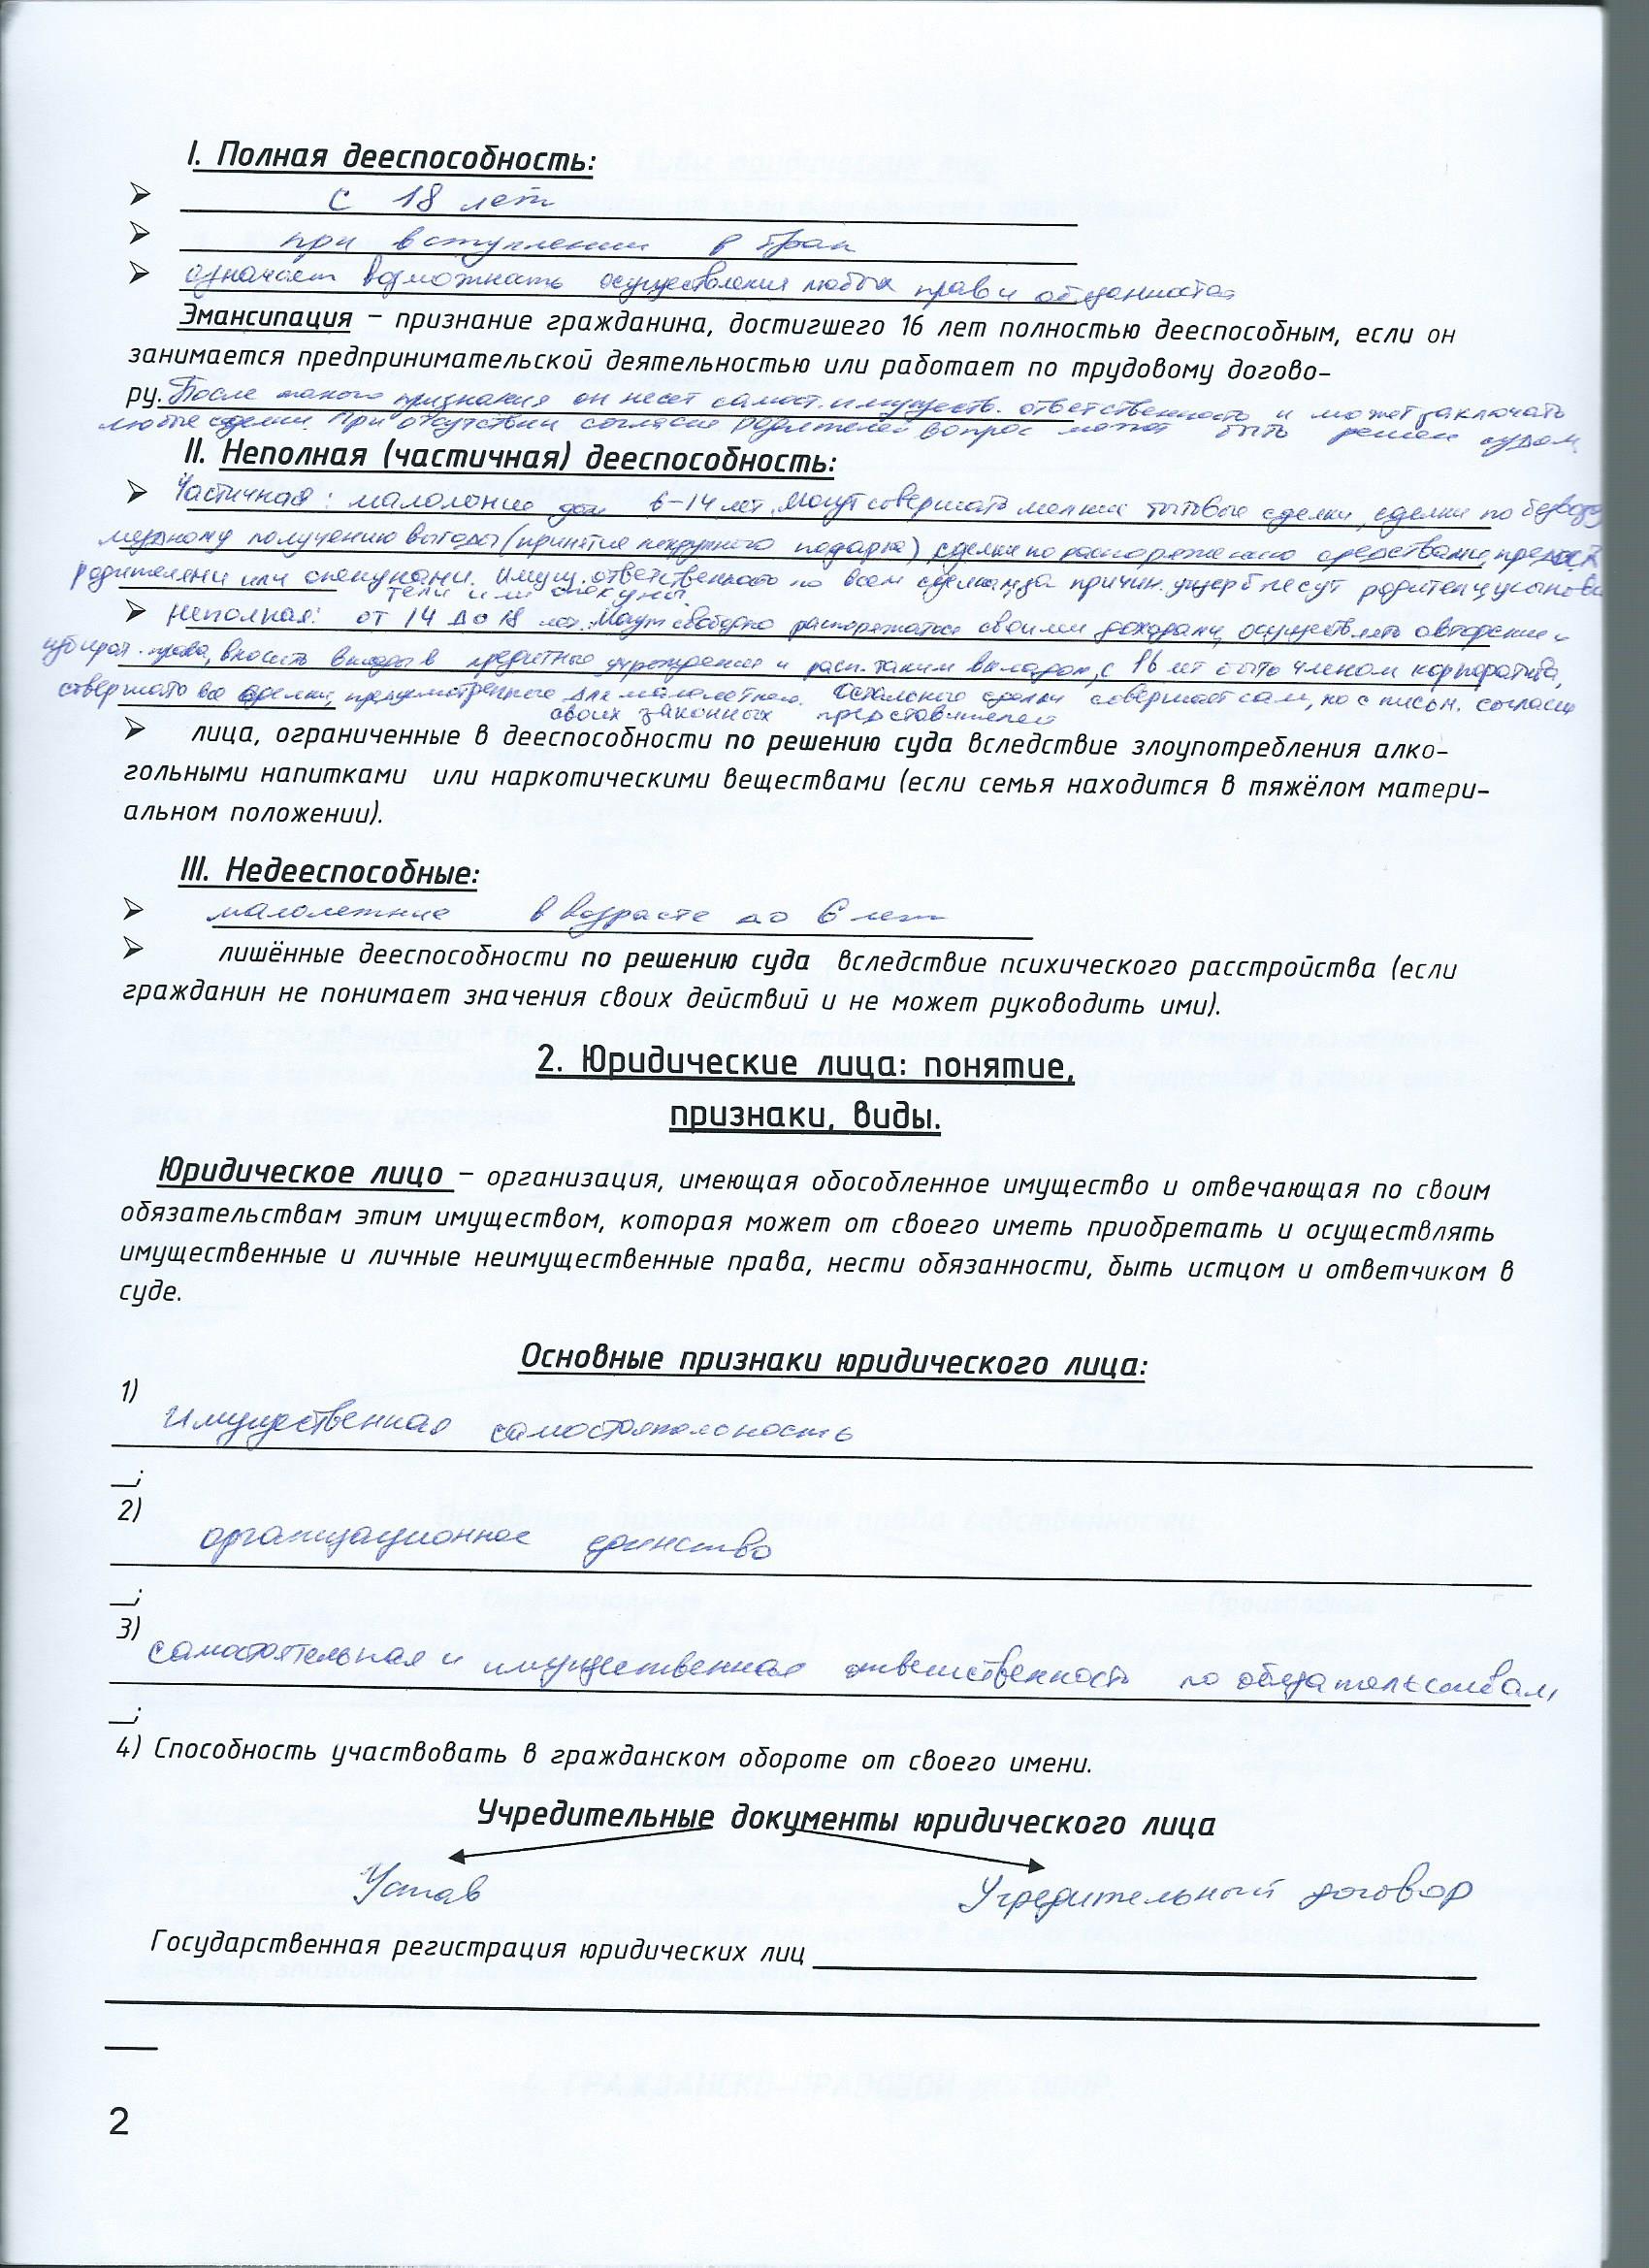 I. Полная дееспособность:
➢ с 18 лет
➢ при вступлении в брак
➢ означает возможность осуществления любых прав и обязанностей
Эмансипация – признание гражданина, достигшего 16 лет полностью дееспособным, если он
занимается предпринимательской деятельностью или работает по трудовому догово-
ру. После такого признания он несет самост. имуществ. ответственность и может заключать
любые сделки. При отсутствии согласия родителей вопрос может быть решен судом
II. Неполная (частичная) дееспособность:
➢ Частичная: 6-14 лет. Могут совершать мелкие бытовые сделки, сделки по безвоз
мездному получению выгоды (принятие подарка) сделки по распоряжению средствами,
родителями или опекунами. Имущ. ответственность по всем сделкам, за причин. ущерб несут родители, усынови
тели или опекуны.
➢ неполная: от 14 до 18 лет. Могут свободно распоряжаться своими доходами, осуществлять авторские и
избират. права, вносить вклады в кредитные учреждения и расп. таким вкладом, с 16 лет быть членом
совершать все сделки, для малолетних. Остальные сделки совершает сам, но с письм. согласия
своих законных представителей
➢ лица, ограниченные в дееспособности по решению суда вследствие злоупотребления алко-
гольными напитками или наркотическими веществами (если семья находится в тяжёлом матери-
альном положении).
III. Недееспособные:
➢ малолетние в возрасте до 6 лет
➢ лишённые дееспособности по решению суда вследствие психического расстройства (если
гражданин не понимает значения своих действий и не может руководить ими).
2. Юридические лица: понятие,
признаки, виды.
Юридическое лицо – организация, имеющая обособленное имущество и отвечающая по своим
обязательствам этим имуществом, которая может от своего иметь приобретать и осуществлять
имущественные и личные неимущественные права, нести обязанности, быть истцом и ответчиком в
суде.
Основные признаки юридического лица:
1)
имущественная самостоятельность
_;
2)
организационное единство
_;
3)
самостоятельная и имущественная ответственность по обязательствам,
_;
4) Способность участвовать в гражданском обороте от своего имени.
Учредительные документы юридического лица
Устав Учредительный договор
Государственная регистрация юридических лиц
2